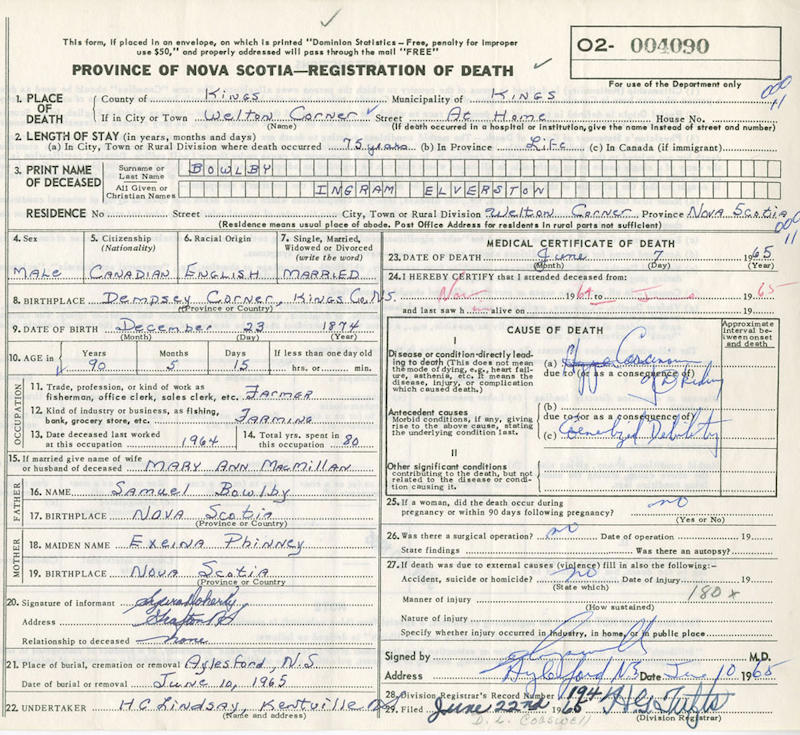 This form, if placed in an envelope, on which is printed "Dominion Statistics – Free, penalty for improper
use $50," and properly addressed will pass through the mail "FREE"
PROVINCE OF NOVA SCOTIA—REGISTRATION OF DEATH
O2- 004090
For use of the Department only
1. PLACE OF DEATH
County of Kings Municipality of Kings
If in City or Town Welton Corner Street At Home House No.
(Name) (If death occurred in a hospital or institution, give the name instead of street and number)
2. LENGTH OF STAY (in years, months and days)
(a) In City, Town or Rural Division where death occurred 75 years (b) In Province Life (c) In Canada (if immigrant)
3. PRINT NAME OF DECEASED
Surname or Last Name BOWLBY
All Given or Christian Names INGRAM ELVERSTON
RESIDENCE No Street City, Town or Rural Division Welton Corner Province Nova Scotia
(Residence means usual place of abode. Post Office Address for residents in rural parts not sufficient)
4. Sex
MALE
5. Citizenship (Nationality)
CANADIAN
6. Racial Origin
ENGLISH
7. Single, Married, Widowed or Divorced (write the word)
MARRIED
8. BIRTHPLACE Dempsey Corner, Kings Co. N.S.
(Province or Country)
9. DATE OF BIRTH December 23 1874
(Month) (Day) (Year)
10. AGE in
Years Months Days If less than one day old
90 5 15 hrs. or min.
OCCUPATION
11. Trade, profession, or kind of work as
fisherman, office clerk, sales clerk, etc. Farmer
12. Kind of industry or business, as fishing,
bank, grocery store, etc. Farming
13. Date deceased last worked
at this occupation 1964
14. Total yrs. spent in
this occupation 80
15. If married give name of wife
or husband of deceased MARY ANN MACMILLAN
FATHER
16. NAME Samuel Bowlby
17. BIRTHPLACE Nova Scotia
(Province or Country)
MOTHER
18. MAIDEN NAME Exeina Phinney
19. BIRTHPLACE Nova Scotia
(Province or Country
20. Signature of informant
Address Grafton NS
Relationship to deceased none
21. Place of burial, cremation or removal Aylesford, N.S.
Date of burial or removal June 10, 1965
22. UNDERTAKER H C Lindsay, Kentville NS
(Name and address)
MEDICAL CERTIFICATE OF DEATH
23. DATE OF DEATH June 7 1965
(Month) (Day) (Year)
24. I HEREBY CERTIFY that I attended deceased from:
Nov 1964 to June 1965
and last saw h alive on 19
CAUSE OF DEATH
Approximate Interval between onset and death
I
Disease or condition directly leading to death (This does not mean
the mode of dying, e.g., heart failure, asthenia, etc. It means the
disease, injury, or complication
which caused death.)
(a) Carcinoma
due to (or as a consequence of)
of Kidney
Antecedent causes
Morbid conditions, if any, giving
rise to the above cause, stating
the underlying condition last.
(b)
due to (or as a consequence of)
(c) Generalized Debility
II
Other significant conditions
contributing to the death, but not
related to the disease or condition causing it.
25. If a woman, did the death occur during
pregnancy or within 90 days following pregnancy? no
(Yes or No)
26. Was there a surgical operation? no Date of operation 19
State findings Was there an autopsy?
27. If death was due to external causes (violence) fill in also the following:–
Accident, suicide or homicide? no Date of injury 19
(State which)
180 x
Manner of injury
(How sustained)
Nature of injury
Specify whether injury occurred in industry, in home, or in public place
Signed by M.D.
Address Aylesford NS Date Jun 10 1965
28. Division Registrar's Record Number 194
29. Filed June 22nd 1965 H G Tufts
(Division Registrar)
D. L. COGSWELL